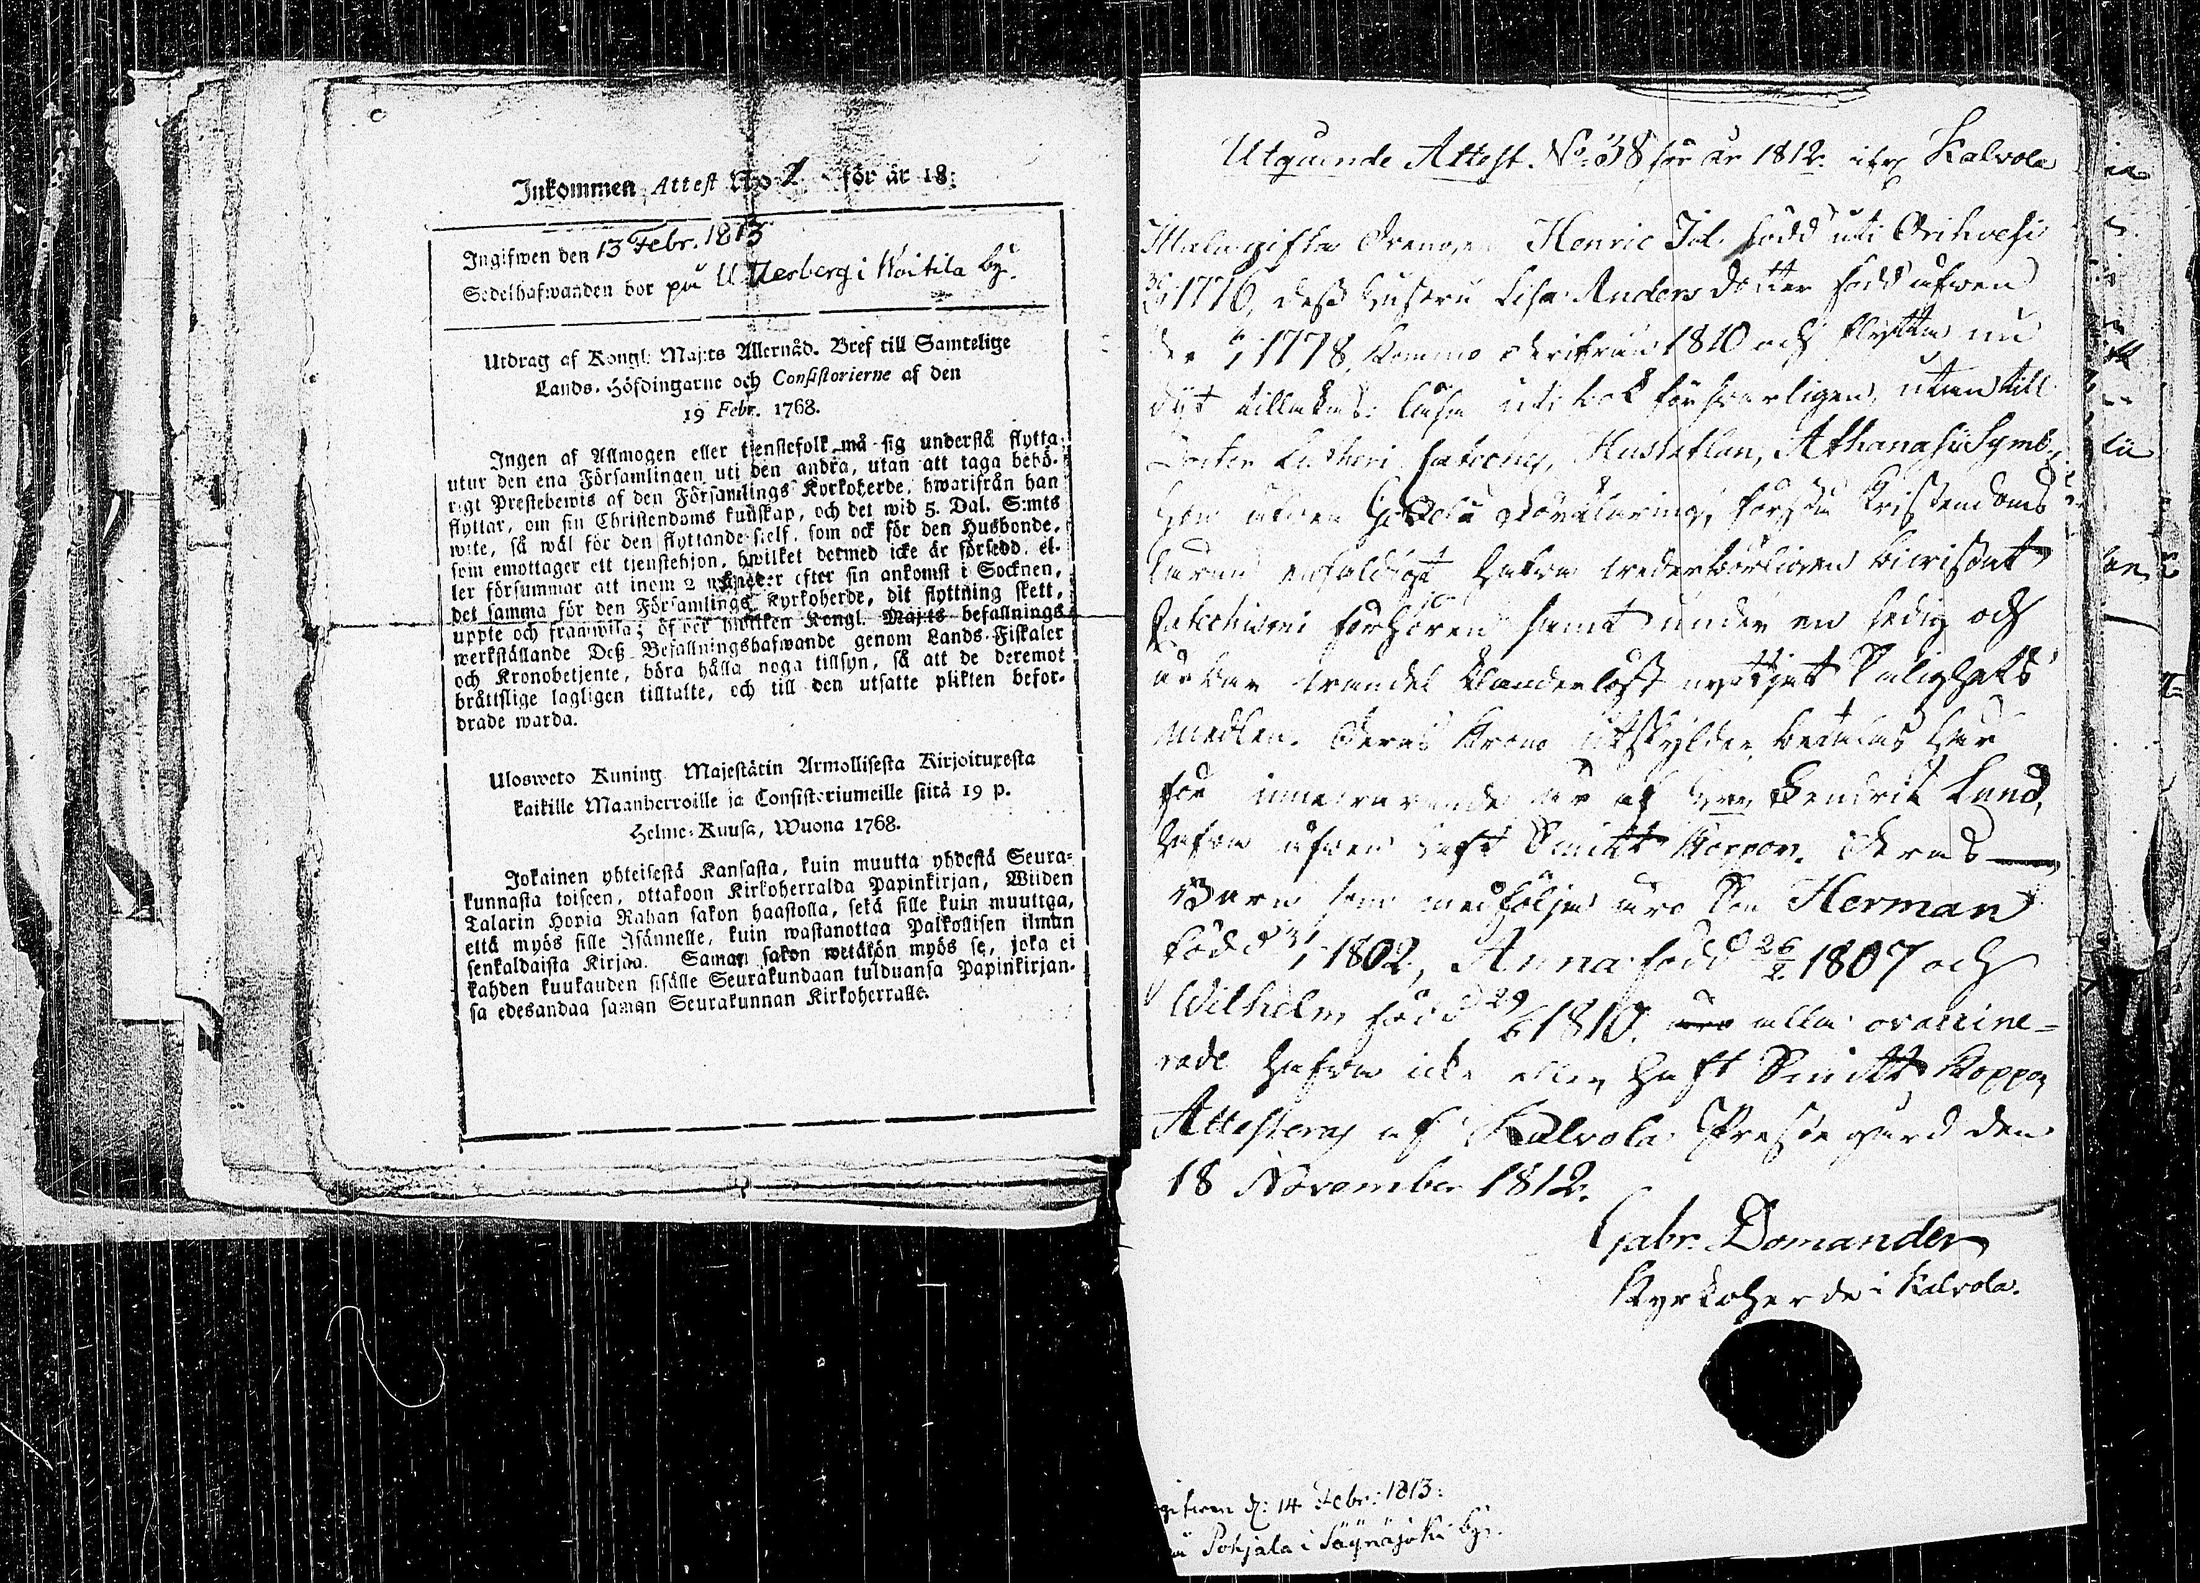 Inkommen Attest No 2 för år 18:
Ingifwen den 13 Febr. 1813
Sedelhafwanden bor på Ullerberg i Woitila by.
Utdrag af Kongl. Maj:ts Allernåd. Bref till Samtelige
Lands-Höfdingarne och Consistorierne af den
19 Febr. 1768.
Ingen af Allmogen eller tjenstefolk må sig understå flytta
utur den ena Församlingen uti den andra, utan att taga behö-
rigt Prestebewis af den Församlings Kyrkoherde, hwarifrån han
flyttar, om sin Christendoms kunskap, och det wid 5. Dal. S:mts
wite, så wäl för den flyttande sielf, som ock för den Husbonde,
som emottager ett tjenstehjon, hwilket dermed icke är försedd, el-
ler försummar att inom 2 månader efter sin ankomst i Socknen,
det samma för den Församlings Kyrkoherde, dit flyttning skett,
uppte och framwisa; öfwer hwilken Kongl. Maj:ts befallnings
werkställande Deß Befallningshafwande genom Lands-Fiskaler
och Kronobetjente, böra hålla noga tillsyn, så att de deremot
bråttslige lagligen tilltalte, och till den utsatte plikten befor-
drade warda.
Ulosweto Kuning. Majestätin Armollisesta Kirjoituxesta
kaikille Maanherroille ja Consistoriumeille siitä 19 p.
Helme-Kuusa, Wuona 1768.
Jokainen yhteisestä Kansasta, kuin muutta yhdestä Seura-
kunnasta toiseen, ottakoon Kirkoherralda Papinkirjan, Wiiden
Talarin Hopia Rahan sakon haastolla, sekä sille kuin muuttaa,
että myös sille Isännelle, kuin wastanottaa Palkollisen ilman
senkaldaista Kirjaa. Saman sakon wetäkön myös se, joka ei
kahden kuukauden sisälle Seurakundaan tulduansa Papinkirjan-
sa edesandaa saman Seurakunnan Kirkoherralle.
Utgående Attest. No. 38 för år 1812. ifrå Kalvola
Henric Joh. född uti Orihvesi
1776, deß hustru Lisa Anders dotter född äfwen
der 1778, komme derifrån 1810 och flytta nu
läsa uti bok försvarligen, utan till
Doctor Lutheri Hustaflan, Athanasii Symb.
Hon äfwen förstå Kristendoms
enfaldigt hafva wederbörligen biwistat
Catechismi förhören samt under en sedig och
ärbar wandel klanderlöst nyttjat Salighets
medlen. Deras krono utskylder betalas här
för innewarande år af Hendrik Lund,
hafva äfwen haft Smitt Koppor. Deras
Barn som medfölja äro Son Herman
född 1802, Anna född 26/2 1807 och
Wilhelm född 29/6 1810. alla ovaccine-
rade hafva icke eller haft Smitt Koppor
Attesteras af Kalvola Prestegård den
18 November 1812.
Gabr. Domander
Kyrkoherde i Kalvola.
gifwen d: 14 Febr: 1813:
Pohjala i Säynäjoki by.